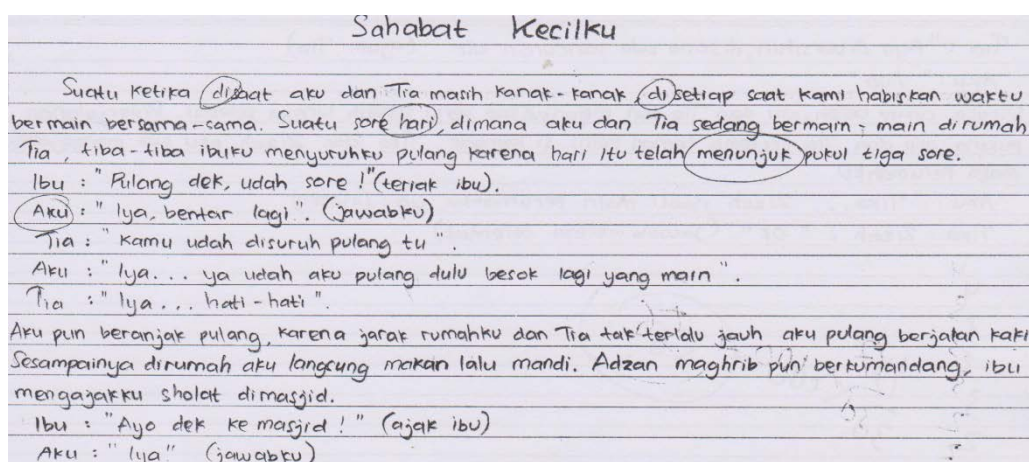 Sahabat Kecilku
Suatu ketika disaat aku dan Tia masih kanak-kanak, di setiap saat kami habiskan waktu
bermain bersama-sama. Suatu sore hari, dimana aku dan Tia sedang bermain-main dirumah
Tia, tiba-tiba ibuku menyuruhku pulang karena hari itu telah menunjuk pukul tiga sore.
Ibu : "Pulang dek, udah sore !" (teriak ibu).
Aku : "Iya, bentar lagi". (jawabku)
Tia : "Kamu udah disuruh pulang tu".
Aku : "Iya... ya udah aku pulang dulu besok lagi yang main".
Tia : "Iya... hati-hati".
Aku pun beranjak pulang, karena jarak rumahku dan Tia tak terlalu jauh aku pulang berjalan kaki
Sesampainya dirumah aku langsung makan lalu mandi. Adzan maghrib pun berkumandang, ibu
mengajakku sholat dimasjid.
Ibu : "Ayo dek ke masjid !" (ajak ibu)
Aku : "Iya" (jawabku)